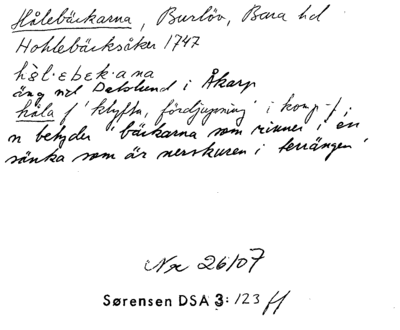 Hålebäckarna, Burlöv, Bara hd
Hohlebäcksåker 1747
hål·ebek·ana
äng nd Dalslund i Åkarp
håla f 'klyfta, fördjupning' i komp -f;
n betyder 'bäckarna som rinner i en
sänka som är nerskuren i terrängen'
Nr 26107
Sørensen DSA 3: 123 ff